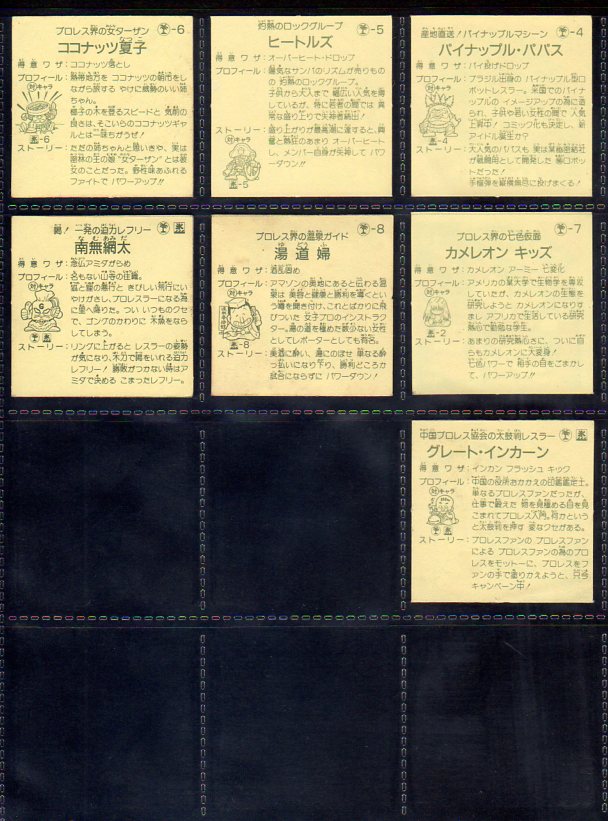 プロレス界の女ターザン -6
ココナッツ夏子
得意ワザ:ココナッツ落とし
プロフィール:熱帯地方を ココナッツの朝市をし
ながら旅する やけに威勢のいい姉
ちゃん。
対キャラ
椰子の木を登るスピードと 気前の
良さは、そこいらのココナッツギャ
ルとは一味ちがうぜ!
-6
ストーリー:ただの姉ちゃんと思いきや、実は
密林の王の娘“女ターザン”とは彼
女のことだった。野性味あふれる
ファイトで パワーアップ!!
灼熱のロックグループ -5
ヒートルズ
得意ワザ:オーバーヒート・ドロップ
プロフィール:陽気なサンバのリズムが売りもの
の 灼熱のロックグループ。
対キャラ
子供から大人まで 幅広い人気を
博しているが、特に若者の間では 異
常な盛り上りで失神者続出!
-5
ストーリー:盛り上りが最高潮に達すると、興
奮と熱狂のあまり オーバーヒート
し、メンバー自身が失神して パワ
ーダウン!!
産地直送!パイナップルマシーン -4
パイナップル・パパス
得意ワザ:パイ投げドロップ
プロフィール:ブラジル出身の パイナップル型ロ
ボットレスラー。某国でのパイナ
対キャラ
ップルの イメージアップの為に造
られ、子供や若い女性の間で 人気
上昇中!コミック化も決定し、新
アイドル誕生か?
-4
ストーリー:大人気のパパスも 実は某秘密結社
が戦闘用として開発した 悪ロボッ
トだった!
手榴弾を縦横無尽に投げまくる!
喝!一発の迫力レフリー
南無網太
得意ワザ:念仏アミダがらめ
プロフィール:名もない山寺の住職。
対キャラ
ストーリー:リングに上がると レスラーの姿勢
が気になり、木刀で肩をいれる迫力
レフリー! 勝敗がつかない時はア
ミダで決める こまったレフリー。
プロレス界の温泉ガイド -8
湯道婦
得意ワザ:酒乱固め
プロフィール:アマゾンの奥地にあると伝わる温泉
は 美容と健康と勝利を導くとい
対キャラ
う噂を聞き付け、これとばかりに飛
びついた 女子プロのインストラクタ
ー。湯の道を極めた数少ない女性
としてレポーターとしても有名。
-8
ストーリー:美酒に酔い、湯にのぼせ 単なる酔
っ払いになり下り、勝利どころか
試合にならずに パワーダウン!
プロレス界の七色仮面 -7
カメレオン キッズ
得意ワザ:カメレオン アーミー 七変化
プロフィール:アメリカの某大学で生物学を専攻
していたが、カメレオンの生態を
対キャラ
研究しようと カメレオンになりす
まし アフリカで生活している研究
熱心で勤勉な学生。
-2
ストーリー:あまりの研究熱心さに、ついに自
らもカメレオンに大変身!
七色パワーで 相手の目をごまかし
て、パワーアップ!!
中国プロレス協会の太鼓判レスラー
グレート・インカーン
得意ワザ:インカン フラッシュ キック
プロフィール:中国の役所おかかえの印鑑鑑定士。
対キャラ
単なるプロレスファンだったが、
仕事で鍛えた 物を見極める目を見
こまれてプロレス入門。何かという
と太鼓判を押す 変なクセがある。
ストーリー:プロレスファンの プロレスファン
による プロレスファンの為のプロ
レスをモットーに、プロレスをフ
ァンの手で盛りかえようと、只今
キャンペーン中!